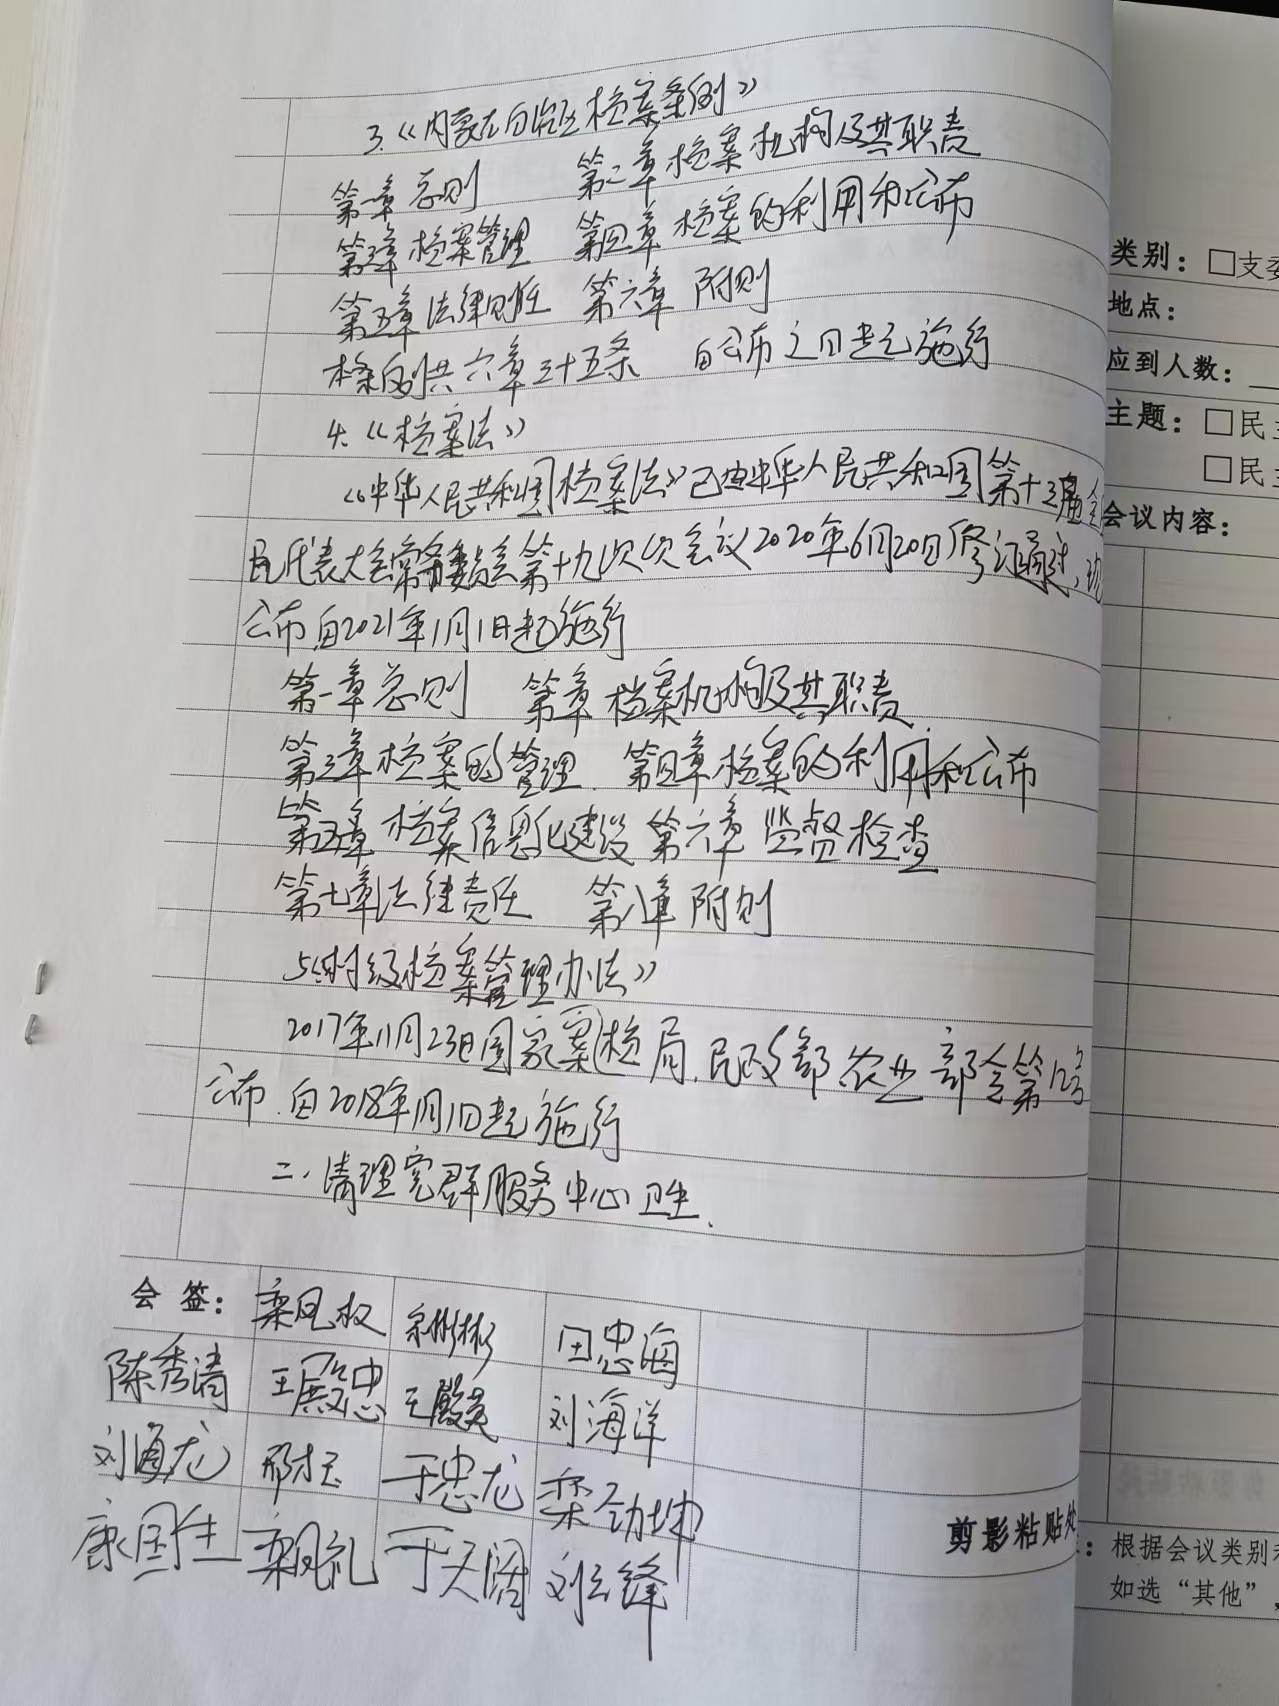 3.《内蒙古自治区档案条例》
第一章 总则 第二章 档案机构及其职责
第三章 档案管理 第四章 档案的利用和公布
第五章 法律责任 第六章 附则
本条例共六章三十五条 自公布之日起施行
4.《档案法》
《中华人民共和国档案法》已由中华人民共和国第十三届全
民代表大会常务委员会第十九次次会议2020年6月20日修订通过,现
公布,自2021年1月1日起施行
第一章 总则 第二章 档案机构及其职责
第三章 档案的管理 第四章 档案的利用和公布
第五章 档案信息化建设 第六章 监督检查
第七章 法律责任 第八章 附则
5《村级档案管理办法》
2017年11月23日国家案档局,民政部 农业部令第12号
公布.自2018年1月1日起施行
二、清理党群服务中心卫生.
会 签: 栾凤权 田忠海
陈秀清 王殿忠 刘海洋
刘海龙 于忠龙 栾劲坤
康国生 栾凤礼 于天阔 刘云锋
剪影粘贴处
类别:□支委
地点:
应到人数:
主题:□民主
□民主
会议内容:
:根据会议类别
如选“其他”,